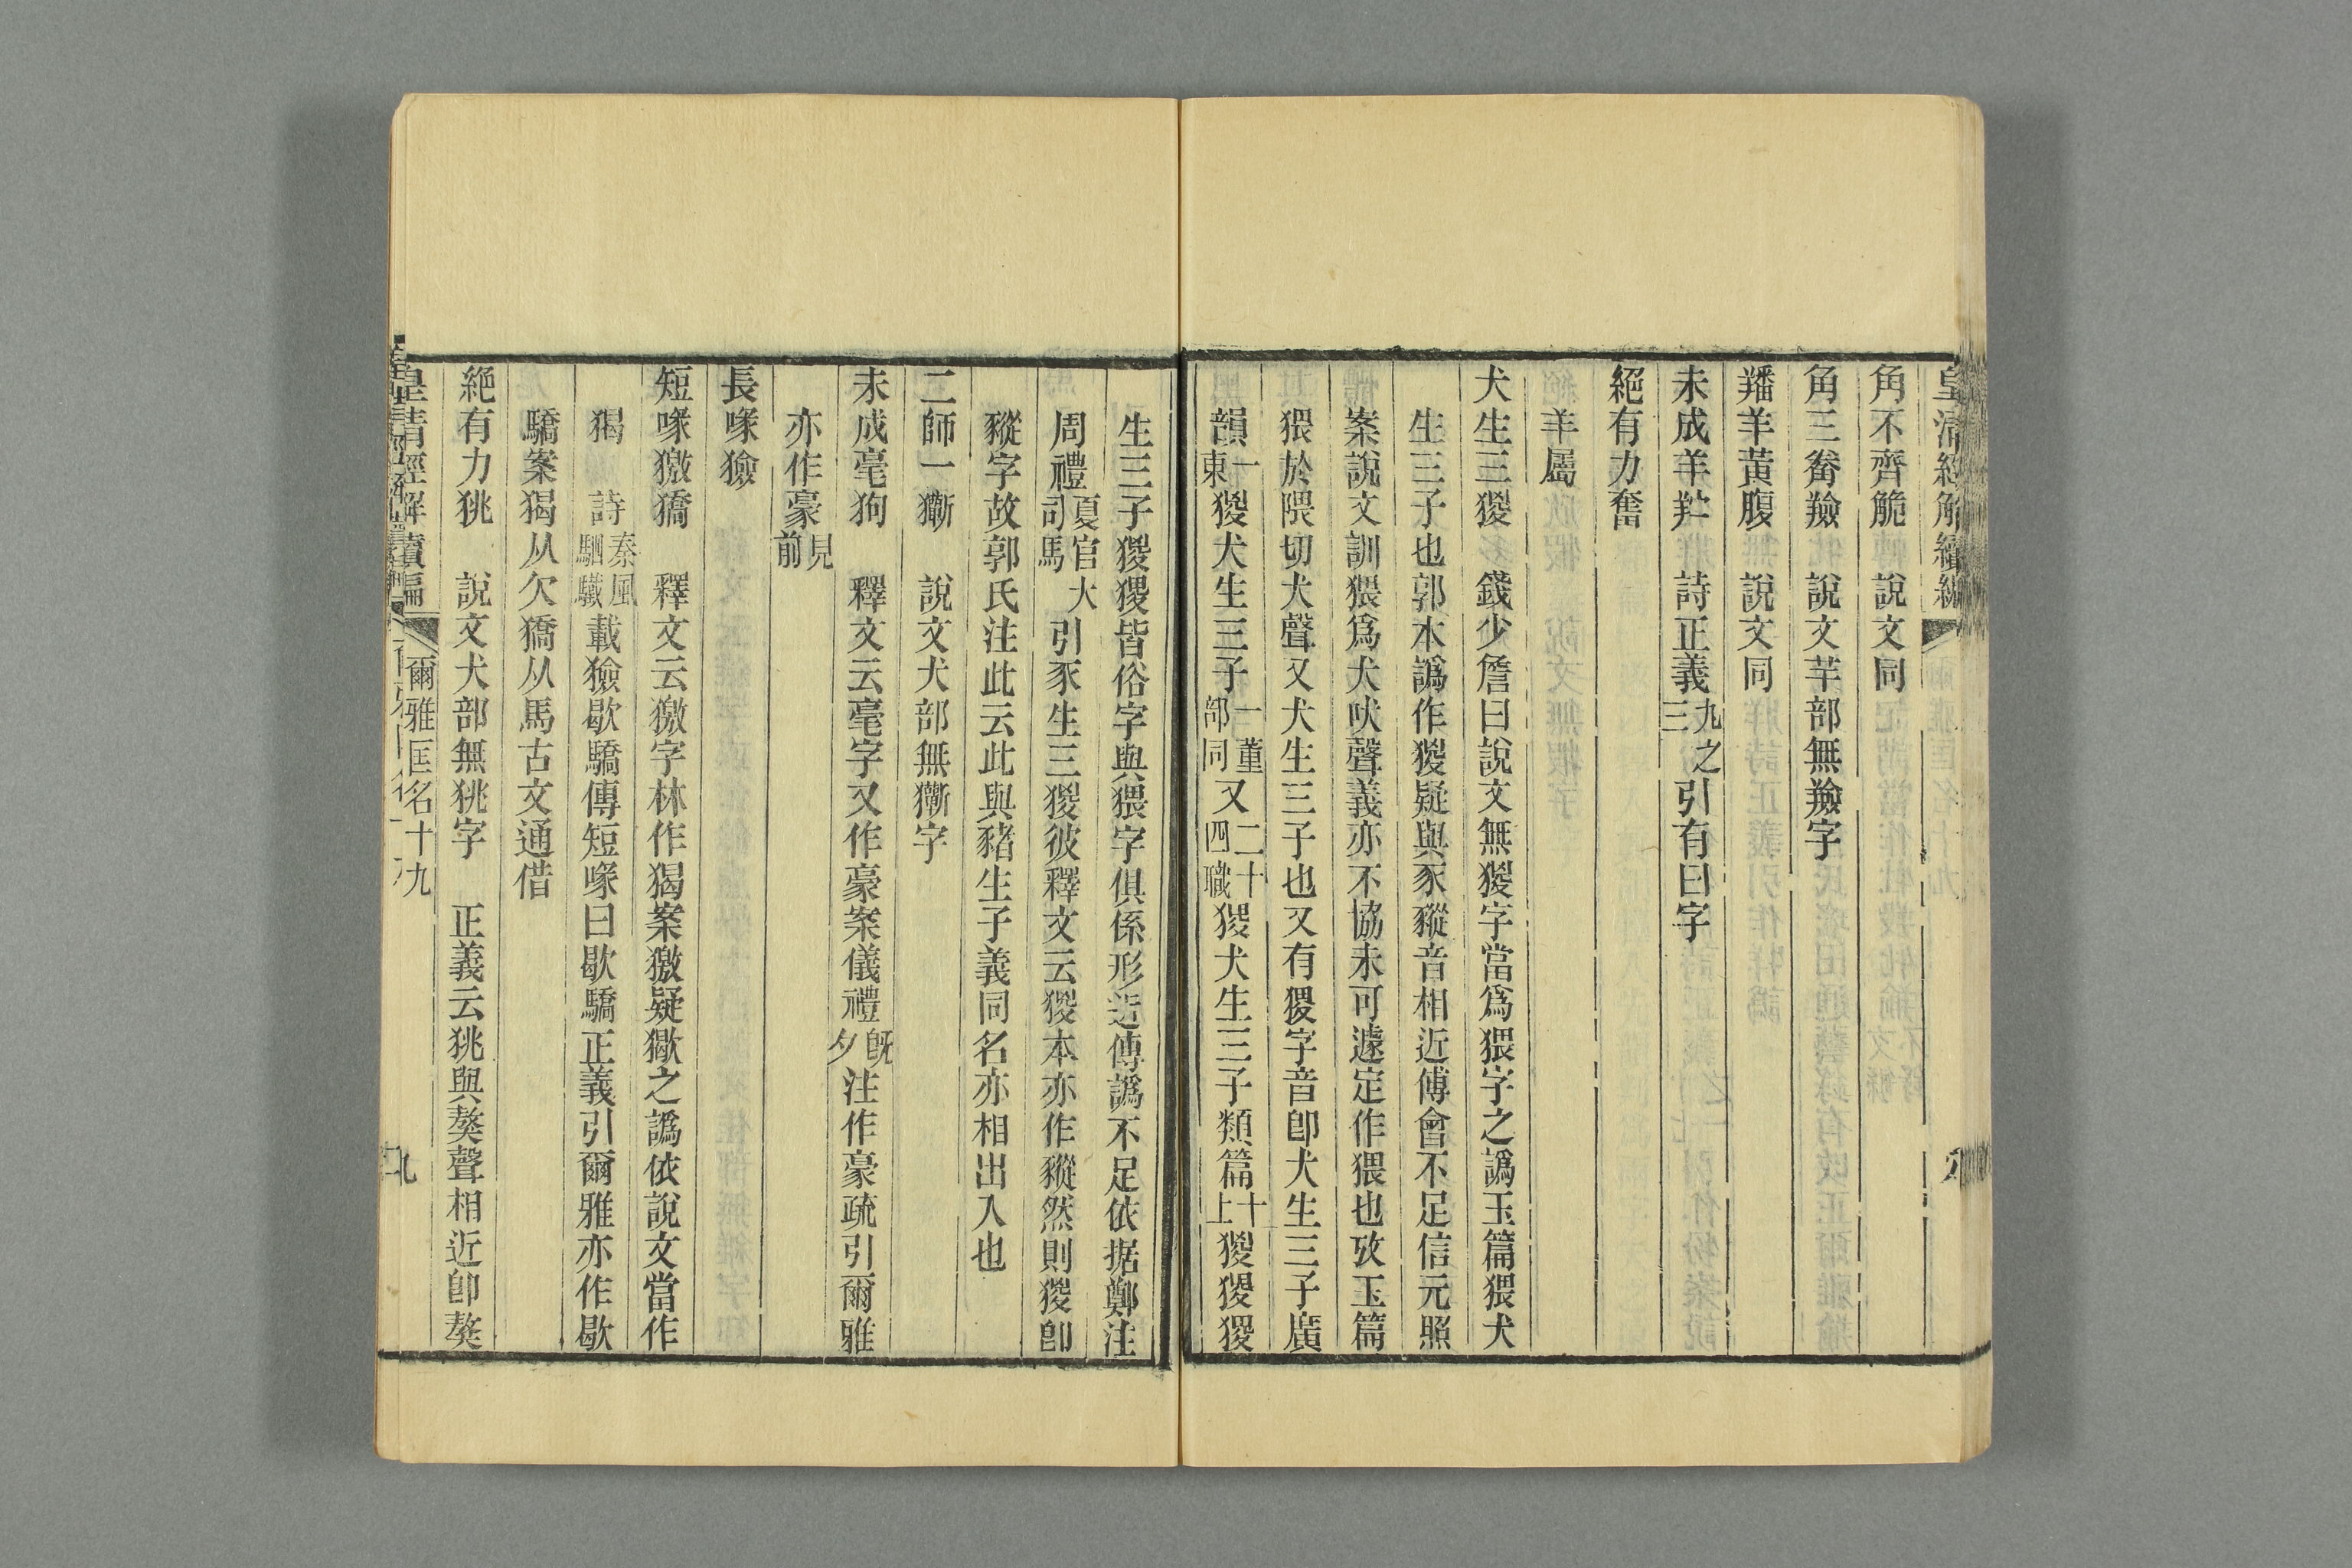 皇清經解續編
角不齊觤　說文同
角三觠羷　說文羊部無羷字
羳羊黃腹　說文同
未成羊羜　詩正義九之三引有曰字
絕有力奮
羊屬
犬生三猣　錢少詹曰說文無猣字當爲猥字之譌玉篇猥犬
生三子也郭本譌作猣疑與豕豵音相近傅會不足信元照
案說文訓猥爲犬吠聲義亦不協未可遽定作猥也攷玉篇
猥於隈切犬聲又犬生三子也又有猣字音卽犬生三子廣
韻一東猣犬生三子一董部同又二十四職猣犬生三子類篇十上猣猣猣
生三子猣猣皆俗字與猥字俱係形近傅譌不足依据鄭注
周禮夏官大司馬引豕生三猣彼釋文云猣本亦作豵然則猣卽
豵字故郭氏注此云此與豬生子義同名亦相出入也
二師一獑　說文犬部無獑字
未成毫狗　釋文云毫字又作豪案儀禮旣夕注作豪疏引爾雅
亦作豪見前
長喙獫
短喙獥獢　釋文云獥字林作猲案獥疑獙之譌依說文當作
猲　詩秦風駟驖載獫歇驕傳短喙曰歇驕正義引爾雅亦作歇
驕案猲从欠獢从馬古文通借
絕有力狣　說文犬部無狣字　正義云狣與獒聲相近卽獒
皇清經解續編　爾雅匡名十九　九